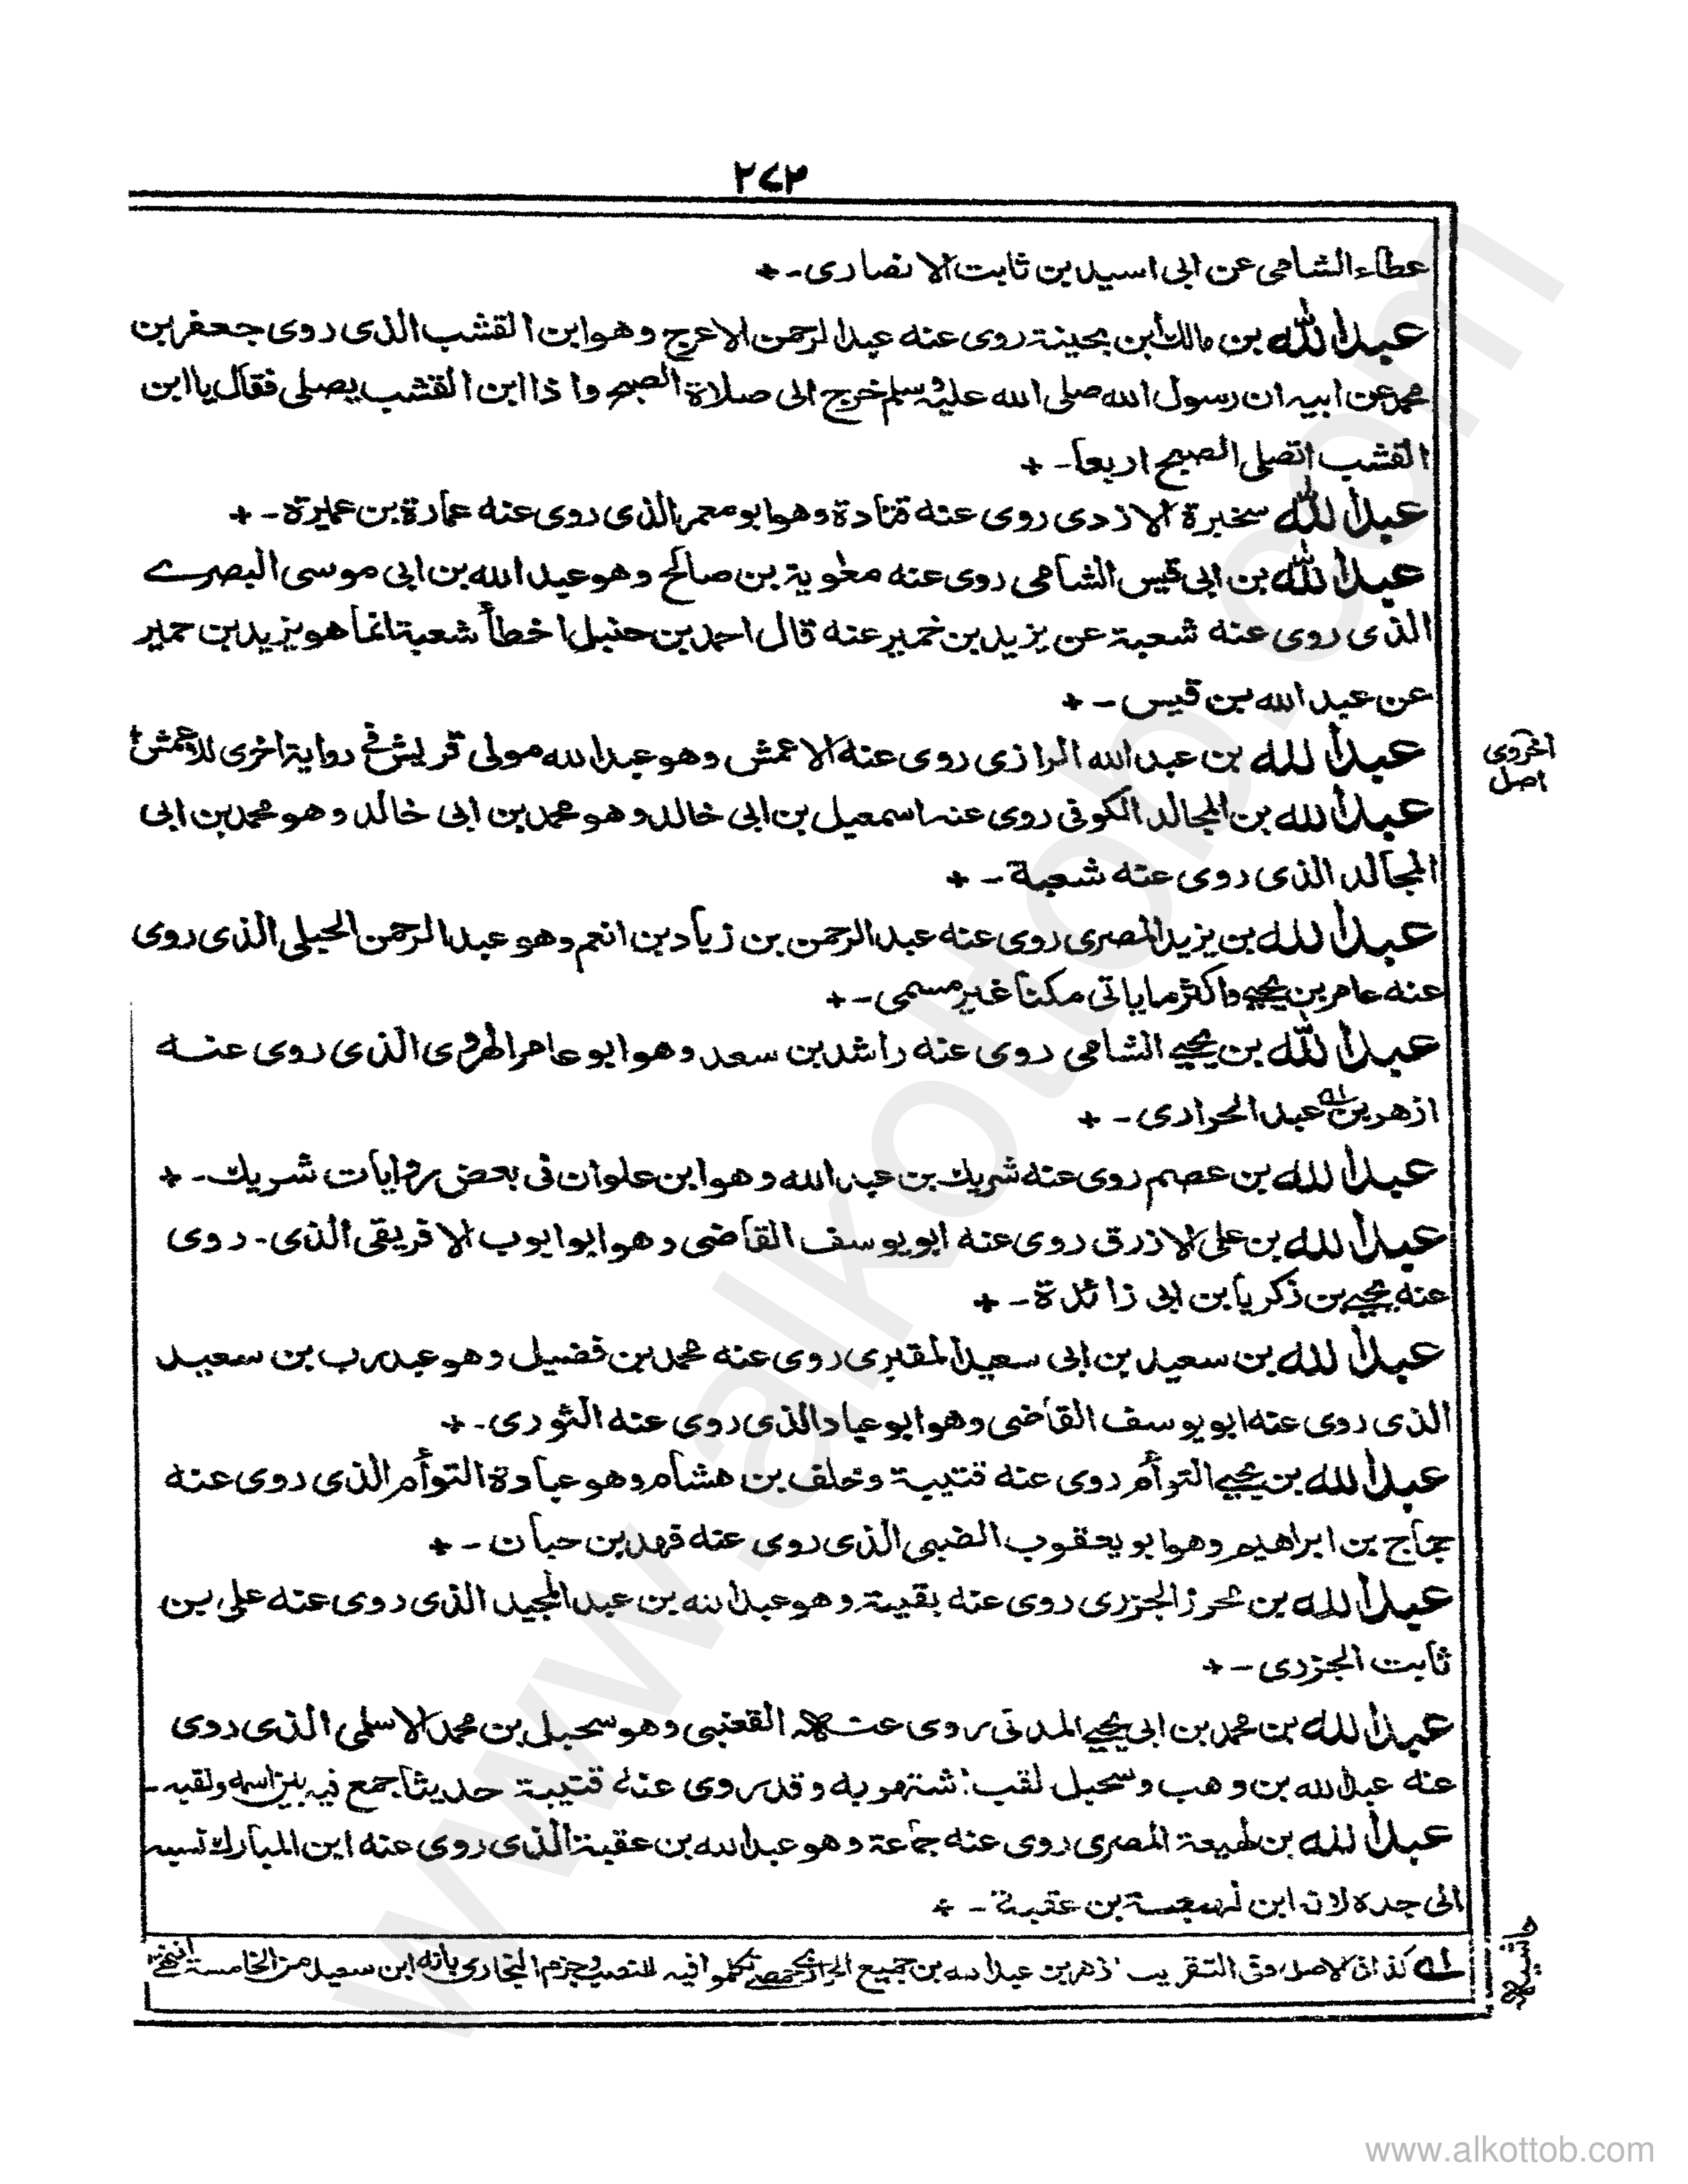 ٢٧٢
عطاء الشامى عن ابى اسيد بن ثابت الانصارى - +
عبد الله بن مالك ابن بحينة روى عنه عبد الرحمن الاعرج وهو ابن القشب الذى روى جعفر بن
محمد عن ابيه ان رسول الله صلى الله عليه وسلم خرج الى صلاة الصبح واذا ابن القشب يصلى فقال يا ابن
القشب اتصلى الصبح اربعا - +
عبد الله سخبرة الازدى روى عنه قتادة وهو ابو معمر الذى روى عنه عمارة بن عميرة - +
عبد الله بن ابى قيس الشامى روى عنه معٰوية بن صالح وهو عبد الله بن ابى موسى البصرے
الذى روى عنه شعبة عن يزيد بن خمير عنه قال احمد بن حنبل اخطأ شعبة انما هو يزيد بن خمير
عن عبد الله بن قيس - +
عبد الله بن عبد الله الرازى روى عنه الاعمش وهو عبد الله مولى قريش فى رواية اخرى للاعمش +
اخروى
اصل
عبد الله بن المجالد الكوفى روى عنه اسمعيل بن ابى خالد وهو محمد بن ابى خالد وهو محمد بن ابى
المجالد الذى روى عنه شعبة - +
عبد الله بن يزيد المصرى روى عنه عبد الرحمن بن زياد بن انعم وهو عبد الرحمن الحبلى الذى روى
عنه عامر بن يحيى واكثر ما ياتى مكنا غير مسمى - +
عبد الله بن يحيى الشامى روى عنه راشد بن سعد وهو ابو عامر الهروى الذى روى عنه
ازهر بن عبد الحرارى - +
عبد الله بن عصم روى عنه شريك بن عبد الله وهو ابن علوان فى بعض روايات شريك - +
عبد الله بن على الازرق روى عنه ابو يوسف القاضى وهو ابو ايوب الافريقى الذى - روى
عنه يحيى بن زكريا بن ابى زائدة - +
عبد الله بن سعيد بن ابى سعيد المقبرى روى عنه محمد بن فضيل وهو عبد رب بن سعيد
الذى روى عنه ابو يوسف القاضى وهو ابو عباد الذى روى عنه الثورى - +
عبد الله بن يحيى التوأم روى عنه قتيبة وخلف بن هشام وهو عبادة التوأم الذى روى عنه
حجاج بن ابراهيم وهو ابو يعقوب الضبى الذى روى عنه فهد بن حبان - +
عبد الله بن محرز الجزرى روى عنه بقية وهو عبد الله بن عبد المجيد الذى روى عنه على بن
ثابت الجزرى - +
عبد الله بن محمد بن ابى يحيى المدنى روى عنه القعنبى وهو سحبل بن محمد الاسلمى الذى روى
عنه عبد الله بن وهب وسحبل لقب وقد روى عنه قتيبة حديثا جمع فيه بين اسمه ولقبه -
عبد الله بن لهيعة المصرى روى عنه جماعة وهو عبد الله بن عقبة الذى روى عنه ابن المبارك نسبه
الى جده لانه ابن لهيعة بن عقبة - +
حاشيه
له كذا فى الاصل وفى التقريب ازهر بن عبد الله بن جميع الحرازى حمصى تكلموا فيه للنصب وجزم البخارى بانه ابن سعيد من الخامسة انتهى
www.alkottob.com
www.alkottob.com